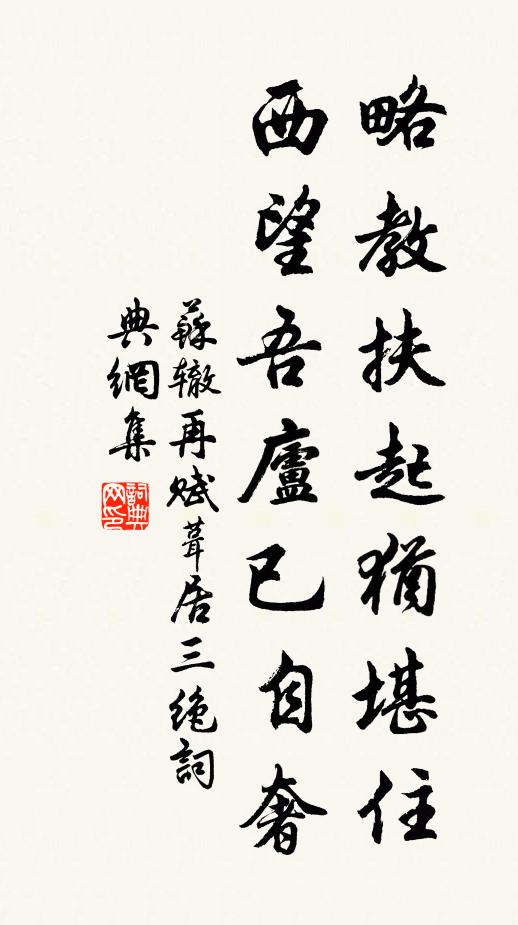 略教扶起猶堪住
西望吾廬已自奢
蘇辙再赋葺居三绝詞
典網集
詞典网印